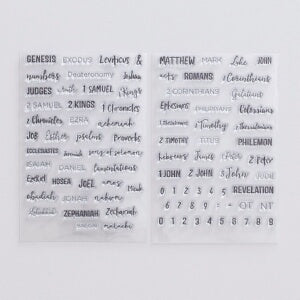 GENESIS EXODUS Leviticus &
numbers Deuteronomy Joshua
JUDGES ruth 1 SAMUEL
2 SAMUEL 2 KINGS 1 Chronicles
2 Chronicles EZRA nehemiah
JOB Esther psalms Proverbs
ECCLESIASTES song of solomon
ISAIAH DANIEL lamentations
Ezekiel HOSEA JOEL amos
obadiah JONAH nahum Micah
Habakkuk ZEPHANIAH Zechariah
HAGGAI malachi
MATTHEW MARK Luke JOHN
acts ROMANS 1 Corinthians
2 CORINTHIANS Galatians
Ephesians PHILIPPIANS Colossians
1 Timothy 2 Thessalonians
2 TIMOTHY TITUS PHILEMON
hebrews James 1 Peter 2 Peter
1 JOHN 2 JOHN 3 John JUDE
0 1 2 3 4 5 REVELATION
6 7 8 9 : - OT NT
0 1 2 3 4 5 6 7 8 9